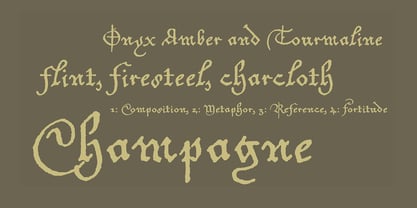 Onyx Amber and Tourmaline
flint, firesteel, charcloth
1: Composition, 2: Metaphor, 3: Reference, 4: fortitude
Champagne